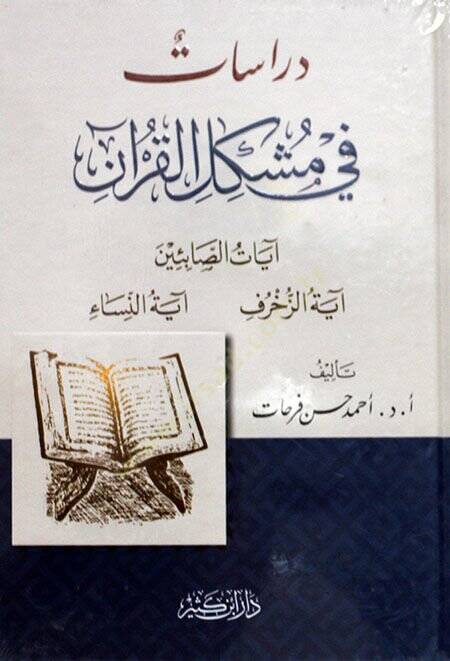 دراساتٌ
في مُشكِلِ القُرْآنِ
آيَاتُ الصَّابِئِيْنَ
آيَةُ الزُّخْرُفِ آيَةُ النِّسَاءِ
تَأْلِيْفُ
أ. د. أحمد حسن فرحات
دَارُ ابْنِ كَثِيْرٍ